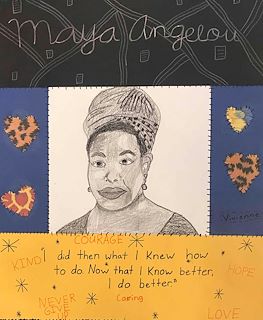 Maya Angelou
Vivienne
COURAGE
"I did then what I knew how
KIND
to do. Now that I know better,
HOPE
I do better."
Caring
NEVER
GIVE
UP
LOVE